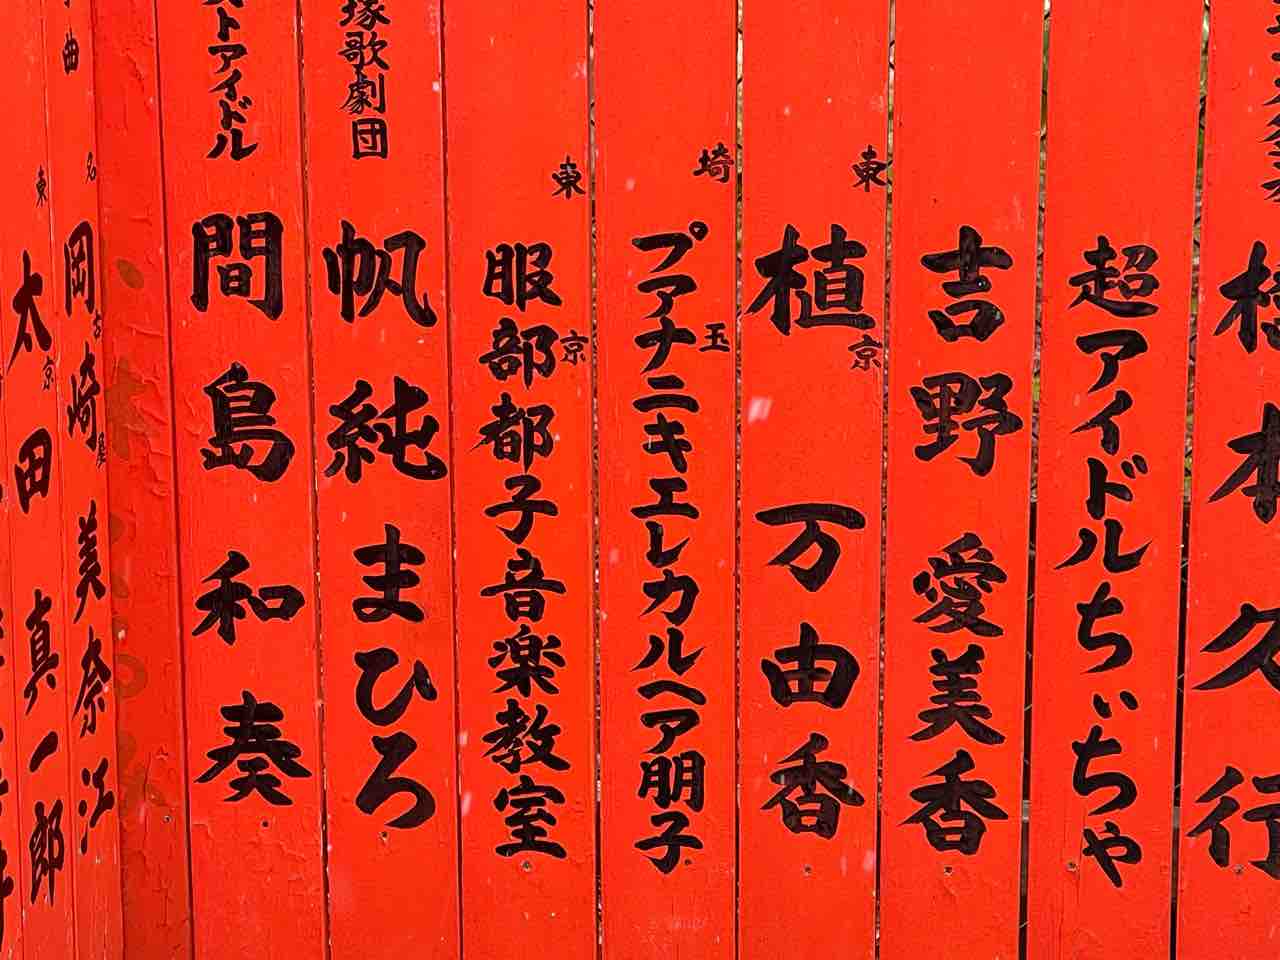 本久行
超アイドルちぃちゃ
吉野愛美香
東京
植万由香
埼玉
プアナニキエレカルヘア朋子
東京
服部都子音楽教室
塚歌劇団
帆純まひろ
ストアイドル
間島和奏
名古屋
岡崎美奈江
曲
東京
太田真一郎